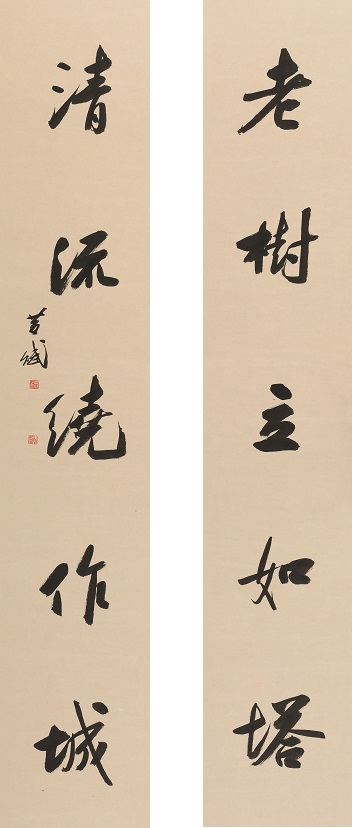 老樹立如塔
清流繞作城